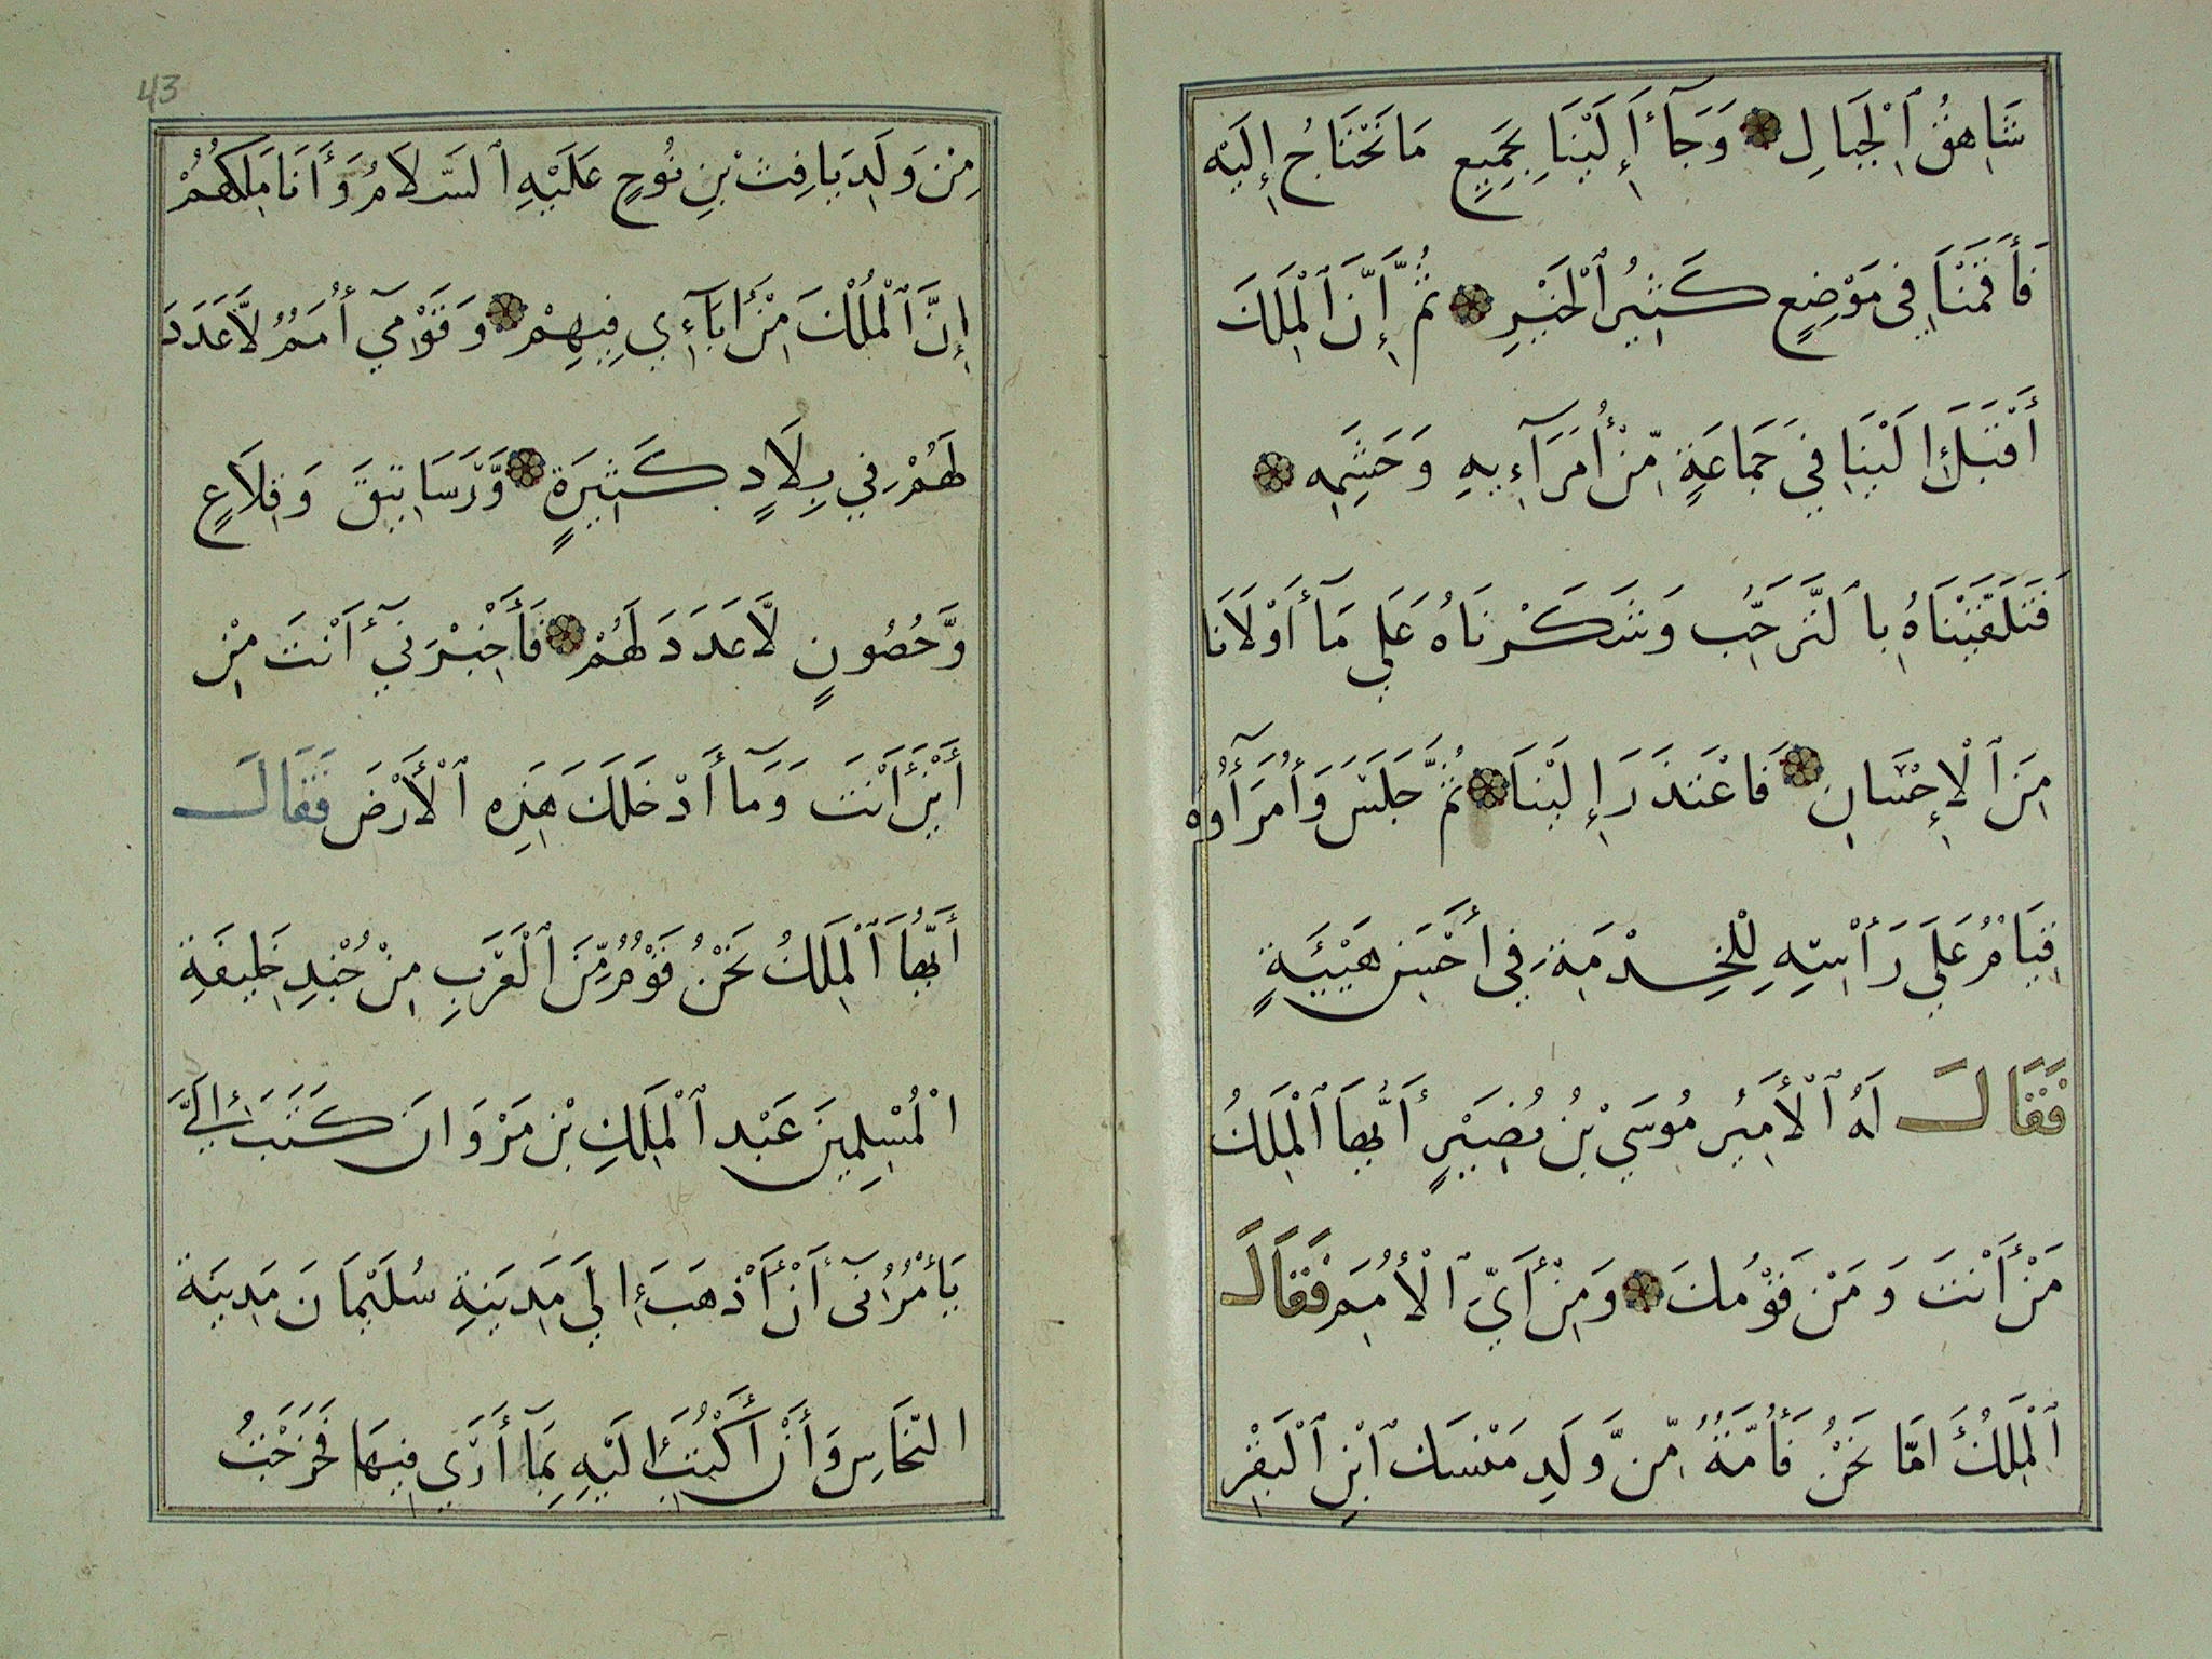 شَاهِقِ ٱلْجِبَالِ وَجَآءَ إِلَيْنَا بِجَمِيعِ مَا نَحْتَاجُ إِلَيْهِ
فَأَقَمْنَا فِي مَوْضِعٍ كَثِيرُ ٱلْخَيْرِ ثُمَّ إِنَّ ٱلْمَلِكَ
أَقْبَلَ إِلَيْنَا فِي جَمَاعَةٍ مِّنْ أُمَرَآءِيهِ وَحَشَمِهِ
فَتَلَقَّيْنَاهُ بِٱلتَّرَحُّبِ وَشَكَرْنَاهُ عَلَي مَآ أَوْلَانَا
مِنَ ٱلْإِحْسَانِ فَاعْتَذَرَ إِلَيْنَا ثُمَّ جَلَسَ وَأُمَرَآؤُه
قِيَامٌ عَلَي رَأْسِهِ لِلْخِدْمَةِ فِي أَحْسَنِ هَيْئَةٍ
فَقَالَ لَهُ ٱلْأَمِيرُ مُوسَي بْنُ نُصَيْرٍ أَيُّهَا ٱلْمَلِكُ
مَنْ أَنْتَ وَمَنْ قَوْمُكَ وَمِنْ أَيِّ ٱلْأُمَمِ فَقَالَ
ٱلْمَلِكُ أَمَّا نَحْنُ فَأُمَّةٌ مِّن وَّلَدِ مَنْسَك ٱبْنِ ٱلْبَقْرِ
43
مِنْ وَلَدِ يَافِثَ بْنِ نُوحٍ عَلَيْهِ ٱلسَّلَامُ وَأَنَا مَلِكُهُمْ
إِنَّ ٱلْمُلْكَ مِنْ آبَآءِي فِيهِمْ وَقَوْمِي أُمَمٌ لَّا عَدَدَ
لَهُمْ فِي بِلَادٍ كَثِيرَةٍ وَّرَسَاتِيقَ وَقِلَاعٍ
وَّحُصُونٍ لَّا عَدَدَ لَهُمْ فَأَخْبِرْنِي أَنْتَ مِنْ
أَيْنَ أَنْتَ وَمَآ أَدْخَلَكَ هَذِهِ ٱلْأَرْضَ فَقَالَ
أَيُّهَا ٱلْمَلِكُ نَحْنُ قَوْمٌ مِّنَ ٱلْعَرَبِ مِنْ جُنْدِ خَلِيفَةِ
الْمُسْلِمِينَ عَبْدِ ٱلْمَلِكِ بْنِ مَرْوَانَ كَتَبَ إِلَيَّ
يَأْمُرُنِي أَنْ أَذْهَبَ إِلَي مَدِينَةِ سُلَيْمَانَ مَدِينَة
النّحَاسِ وَأَنْ أَكْتُبَ إِلَيْهِ بِمَآ أَرَي فِيهَا فَخَرَجْتُ